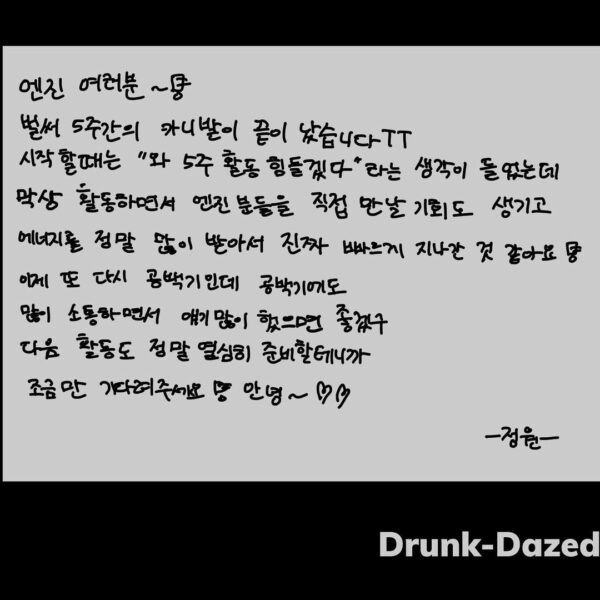 엔진 여러분 ~
벌써 5주간의 카니발이 끝이 났습니다TT
시작할때는 "와 5주 활동 힘들겠다" 라는 생각이 들었는데
막상 활동하면서 엔진분들을 직접 만날 기회도 생기고
에너지를 정말 많이 받아서 진짜 빠르게 지나간 것 같아요
이제 또 다시 공백기인데 공백기에도
많이 소통하면서 얘기 많이 했으면 좋겠구
다음 활동도 정말 열심히 준비할테니까
조금만 기다려주세요 안녕~ ♡♡
-정원-
Drunk-Dazed